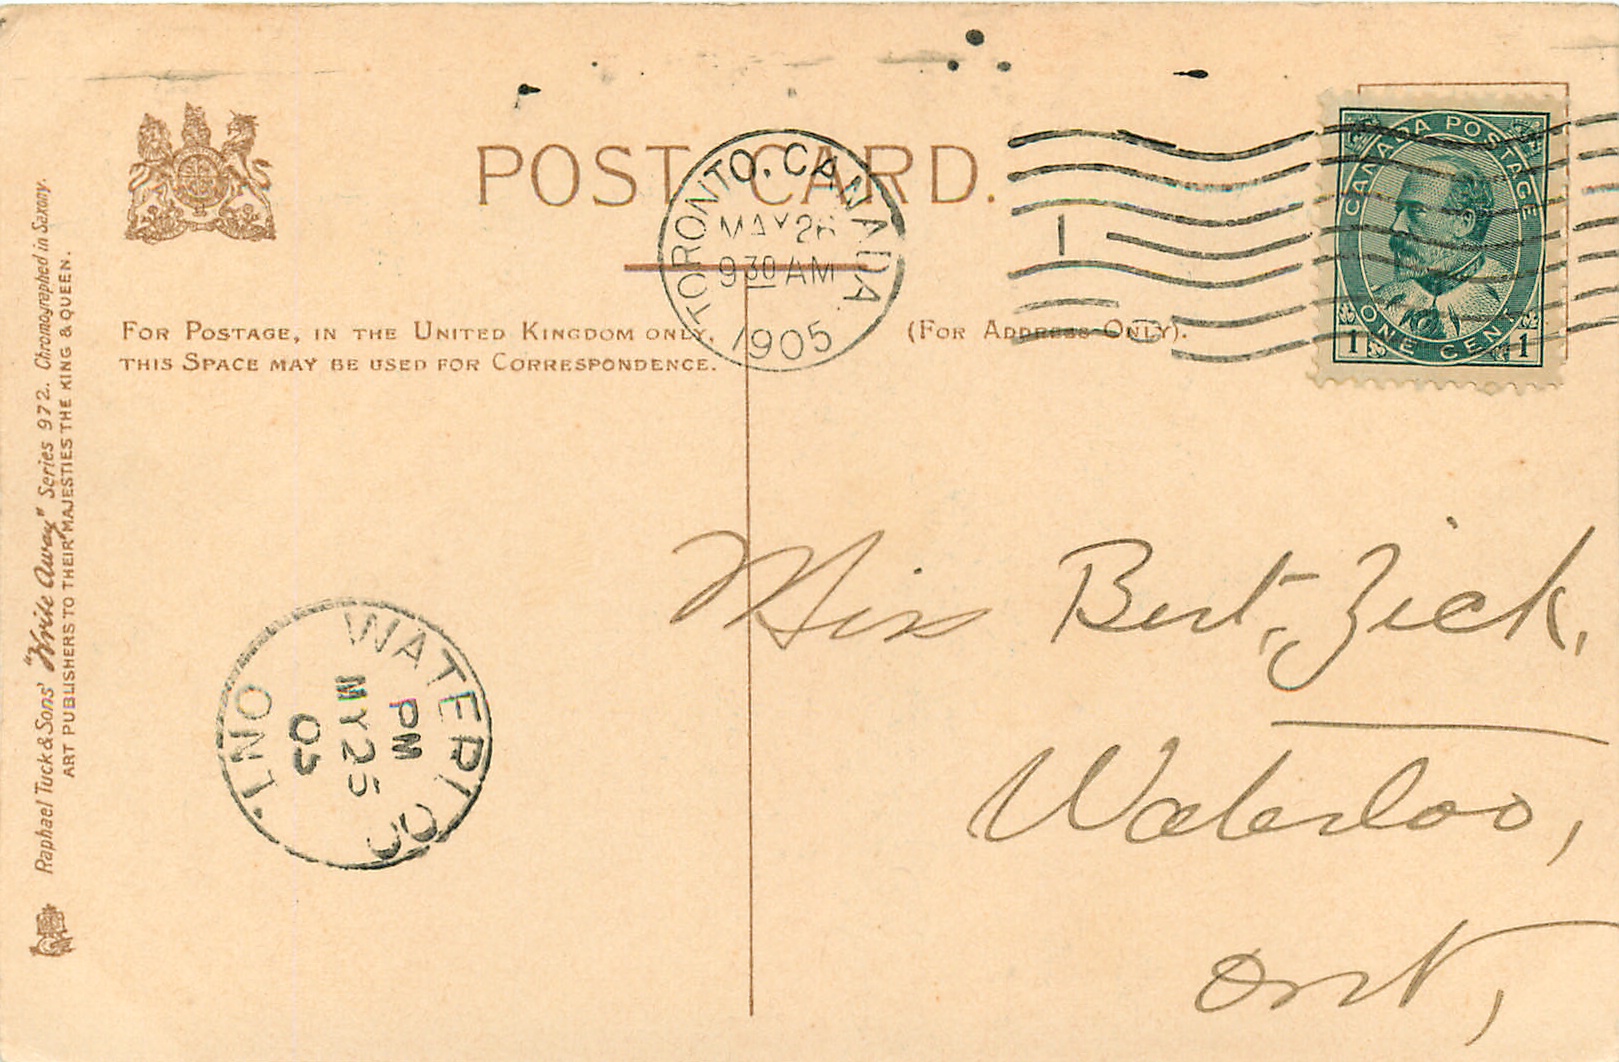 POST CARD.
TORONTO. CANADA
MAY 26
9 30 AM
1905
1
CANADA POSTAGE
ONE CENT
1 1
FOR POSTAGE, IN THE UNITED KINGDOM ONLY,
THIS SPACE MAY BE USED FOR CORRESPONDENCE.
(FOR ADDRESS ONLY).
Raphael Tuck & Sons' "Write Away" Series 972. Chromographed in Saxony.
ART PUBLISHERS TO THEIR MAJESTIES THE KING & QUEEN.
WATERLOO
PM
MY 25
05
ONT.
Miss Bert. Zick,
Waterloo,
Ont,